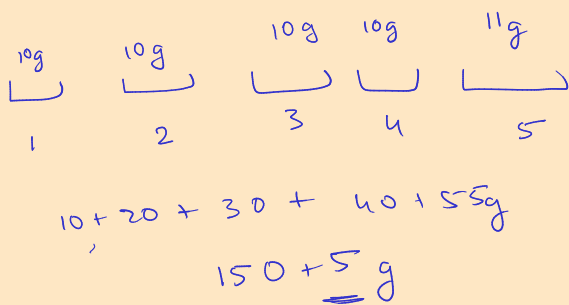 10g 10g 10g 10g 11g
1 2 3 4 5
10 + 20 + 30 + 40 + 55g
150 + 5 g